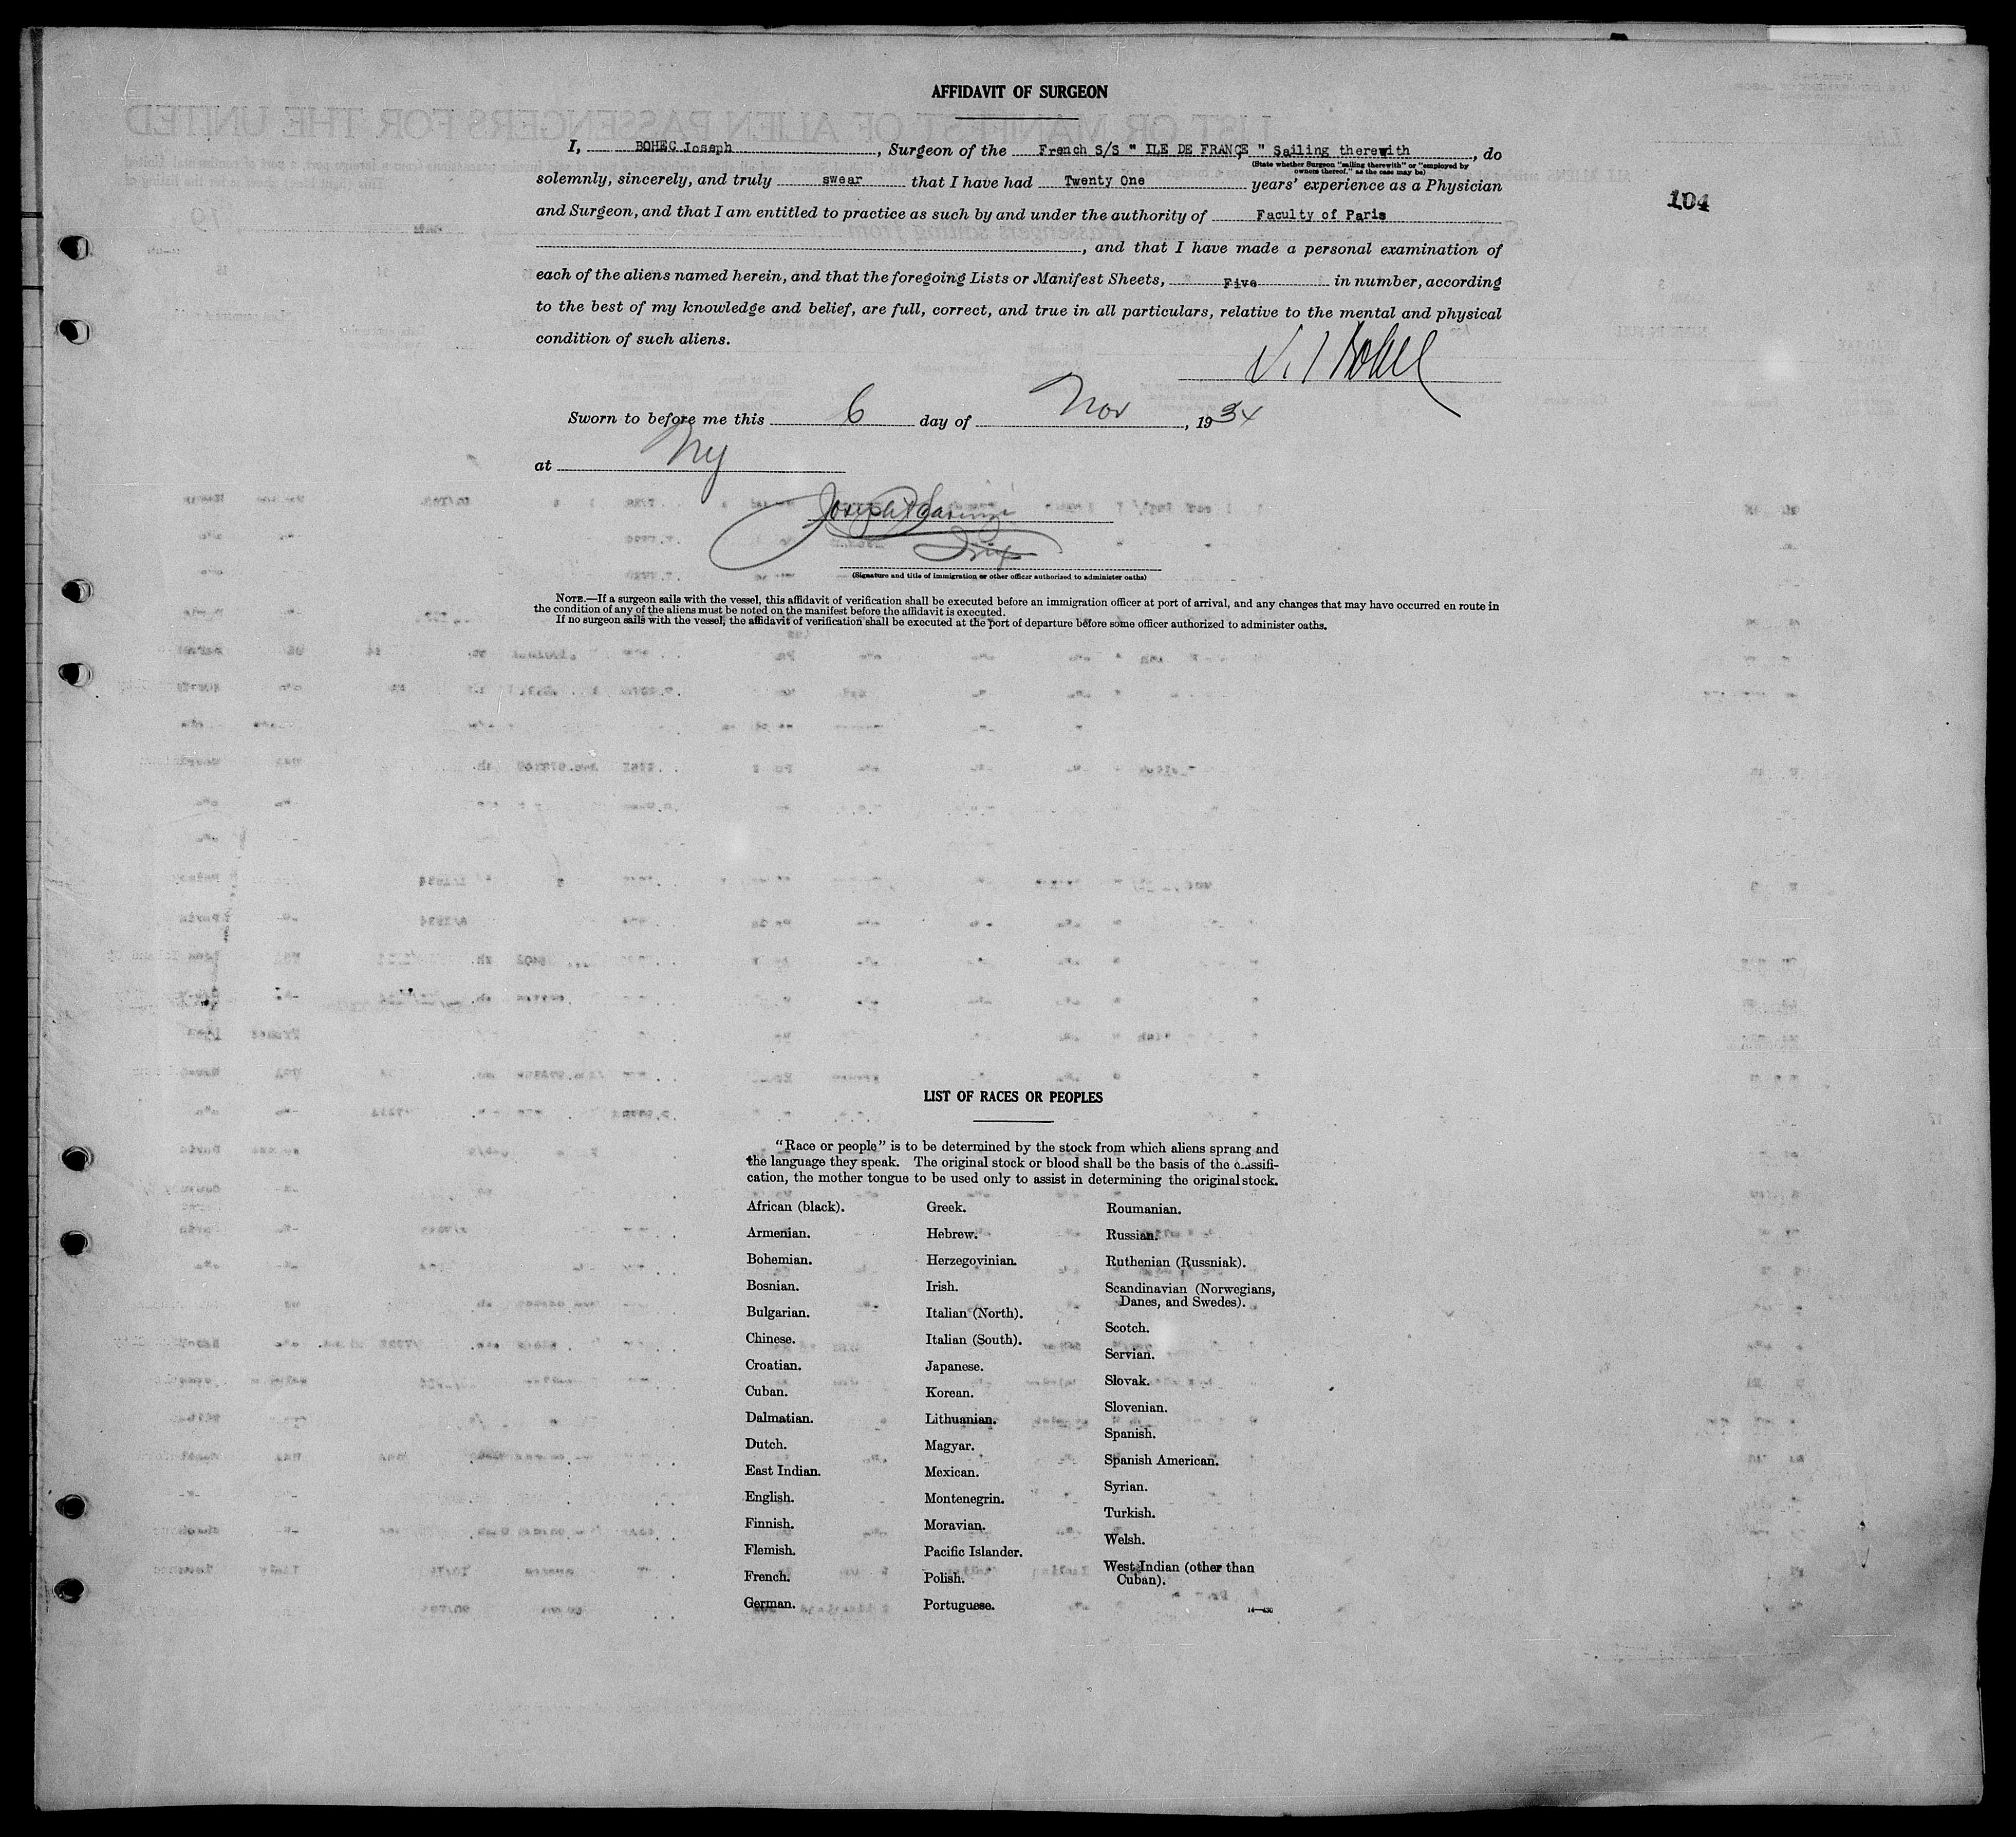 AFFIDAVIT OF SURGEON
I, BOHEC Joseph, Surgeon of the French S/S " ILE DE FRANCE " Sailing therewith, do
(State whether Surgeon "sailing therewith" or "employed by
owners thereof," as the case may be)
solemnly, sincerely, and truly swear that I have had Twenty One years' experience as a Physician
104
and Surgeon, and that I am entitled to practice as such by and under the authority of Faculty of Paris
, and that I have made a personal examination of
each of the aliens named herein, and that the foregoing Lists or Manifest Sheets, Five in number, according
to the best of my knowledge and belief, are full, correct, and true in all particulars, relative to the mental and physical
condition of such aliens.
Sworn to before me this 6 day of Nov, 1934
at NY
Joseph
(Signature and title of immigration or other officer authorized to administer oaths)
NOTE.—If a surgeon sails with the vessel, this affidavit of verification shall be executed before an immigration officer at port of arrival, and any changes that may have occurred en route in
the condition of any of the aliens must be noted on the manifest before the affidavit is executed.
If no surgeon sails with the vessel, the affidavit of verification shall be executed at the port of departure before some officer authorized to administer oaths.
LIST OF RACES OR PEOPLES
"Race or people" is to be determined by the stock from which aliens sprang and
the language they speak. The original stock or blood shall be the basis of the classifi-
cation, the mother tongue to be used only to assist in determining the original stock.
African (black).
Armenian.
Bohemian.
Bosnian.
Bulgarian.
Chinese.
Croatian.
Cuban.
Dalmatian.
Dutch.
East Indian.
English.
Finnish.
Flemish.
French.
German.
Greek.
Hebrew.
Herzegovinian.
Irish.
Italian (North).
Italian (South).
Japanese.
Korean.
Lithuanian.
Magyar.
Mexican.
Montenegrin.
Moravian.
Pacific Islander.
Polish.
Portuguese.
Roumanian.
Russian.
Ruthenian (Russniak).
Scandinavian (Norwegians,
Danes, and Swedes).
Scotch.
Servian.
Slovak.
Slovenian.
Spanish.
Spanish American.
Syrian.
Turkish.
Welsh.
West Indian (other than
Cuban).
14—430